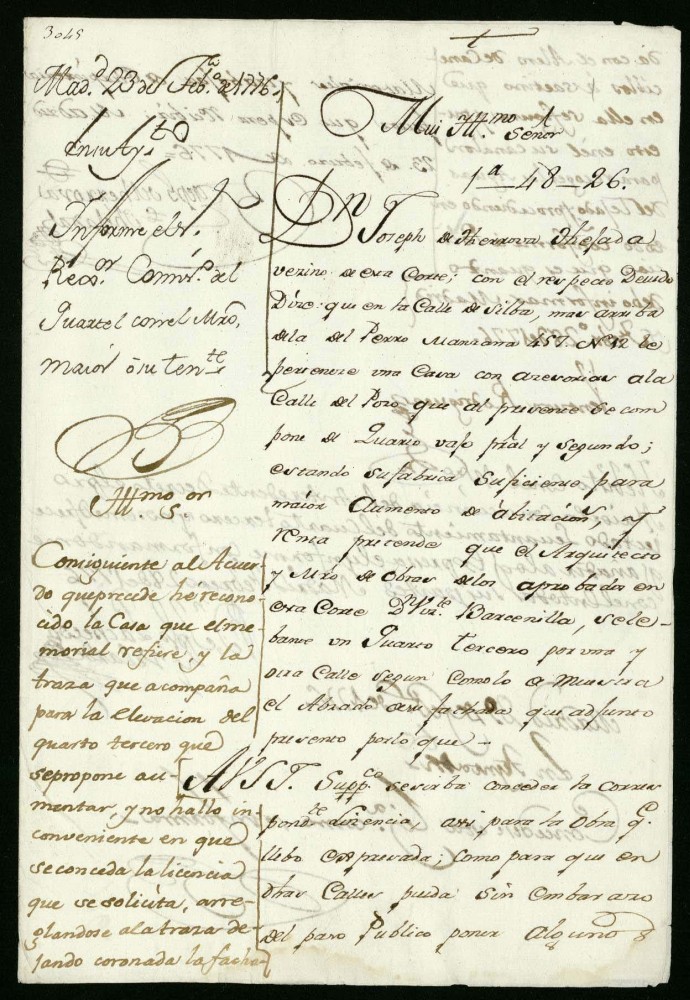 3045
Mad.d 23 de Feb.o de 1776,,
En su Ay.to
Informe el S.r
Rexo.or Comis.o del
Quartel con el Mro,
maior ô su ten.te
Ill.mo s.or
Consiguiente al Acuer-
do que precede he recono-
cido la Casa que el me-
morial refiere, y la
traza que acompaña
para la elevacion del
quarto tercero que
se propone au-
mentar, y no hallo in-
conveniente en que
se conceda la licencia
que se solicita, arre-
glandose a la traza de-
jando coronada la facha-
Mui Ill.mo Señor
1.a-48-26.
Dn Joseph de
vezino de esta Corte; con el respecto Devido
Dize: que en la Calle de Silba, mas arriba
dela del Perro Manzana 457. N.o 12 le
perteneze vna Casa con azesorias ala
Calle del Pozo que al presente se com
pone de Quarto vajo pral y segundo;
estando su fabrica suficiente para
maior Aumento de abitacion.s, y
renta pretende que el Arquitecto
y Mro de Obras delos aprobados en
esta Corte D.n Viz.te Barcenilla, sele-
bante vn Quarto tercero por vna y
otra Calle segun como lo a muestra
el Alzado de su fachada que adjunto
presento por lo que -
AVSI. Supp.co se sirba conceder la corres
pond.te lizencia, assi para la Obra q.e
llebo expresada; como para que en
dhas Calles pueda sin embarazo
del paso Publico poner algunos